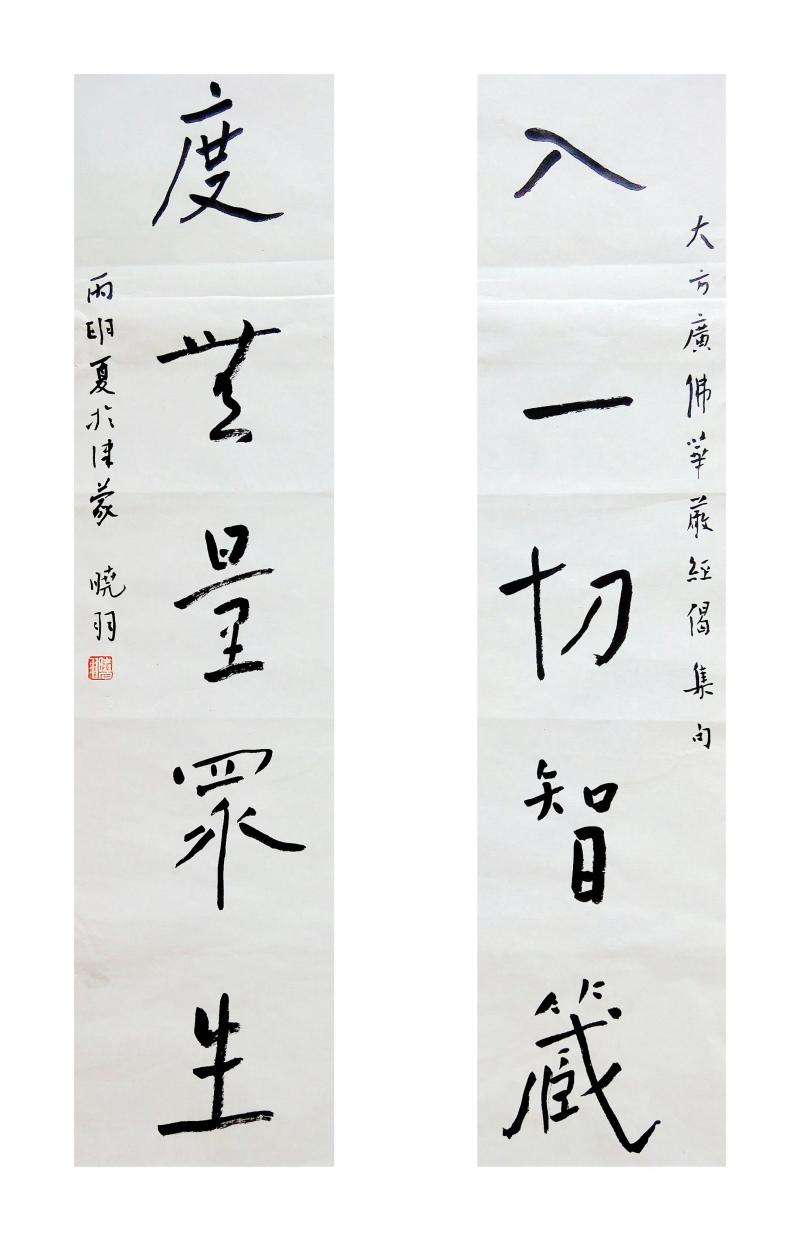 大方廣佛華嚴經偈集句
入一切智藏
度無量眾生
丙申夏於津蒙
曉羽